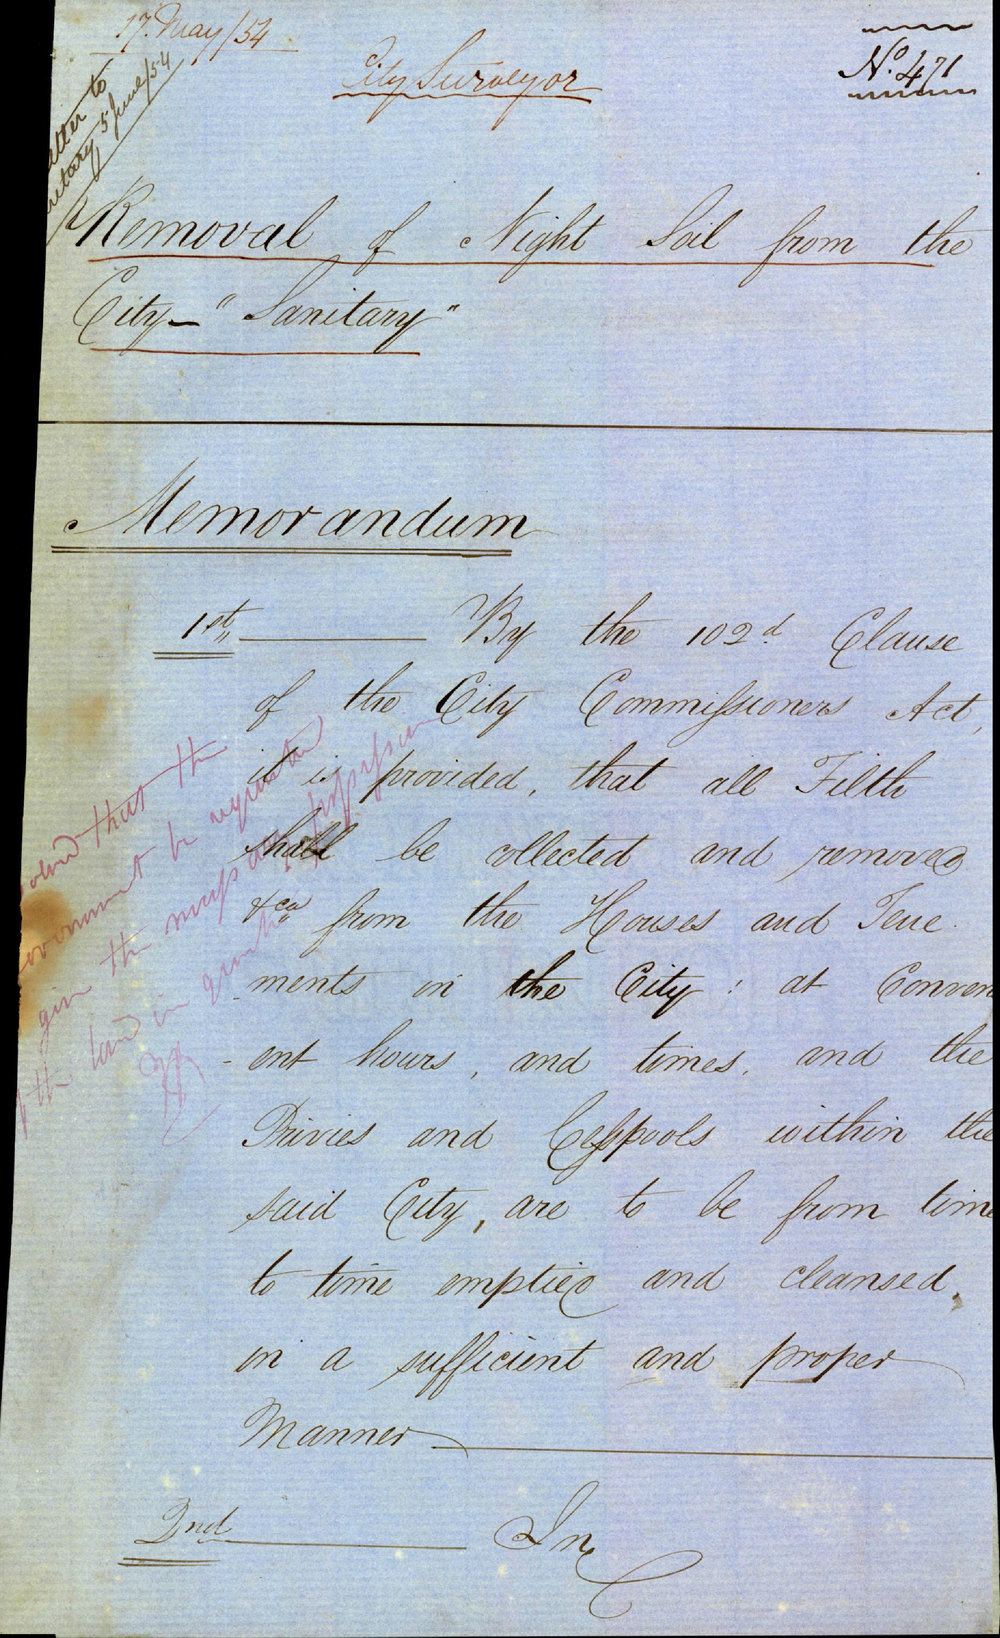 17. May/54
City Surveyor
No. 471
etter to
retary 5 June/54
Removal of Night Soil from the
City - "Sanitary"
Memorandum
1st,, By the 102d. Clause
of the City Commissioners Act,
it is provided, that all Filth
shall be collected and removed
&ca from the Houses and Tene
-ments in the City: at Conveni
-ent hours, and times, and the
Privies and Cesspools within the
said City, are to be from time
to time emptied and cleansed,
in a sufficient and proper
Manner
olved that the
overnment be requested
give the necessary possession
of the land in question
2nd In